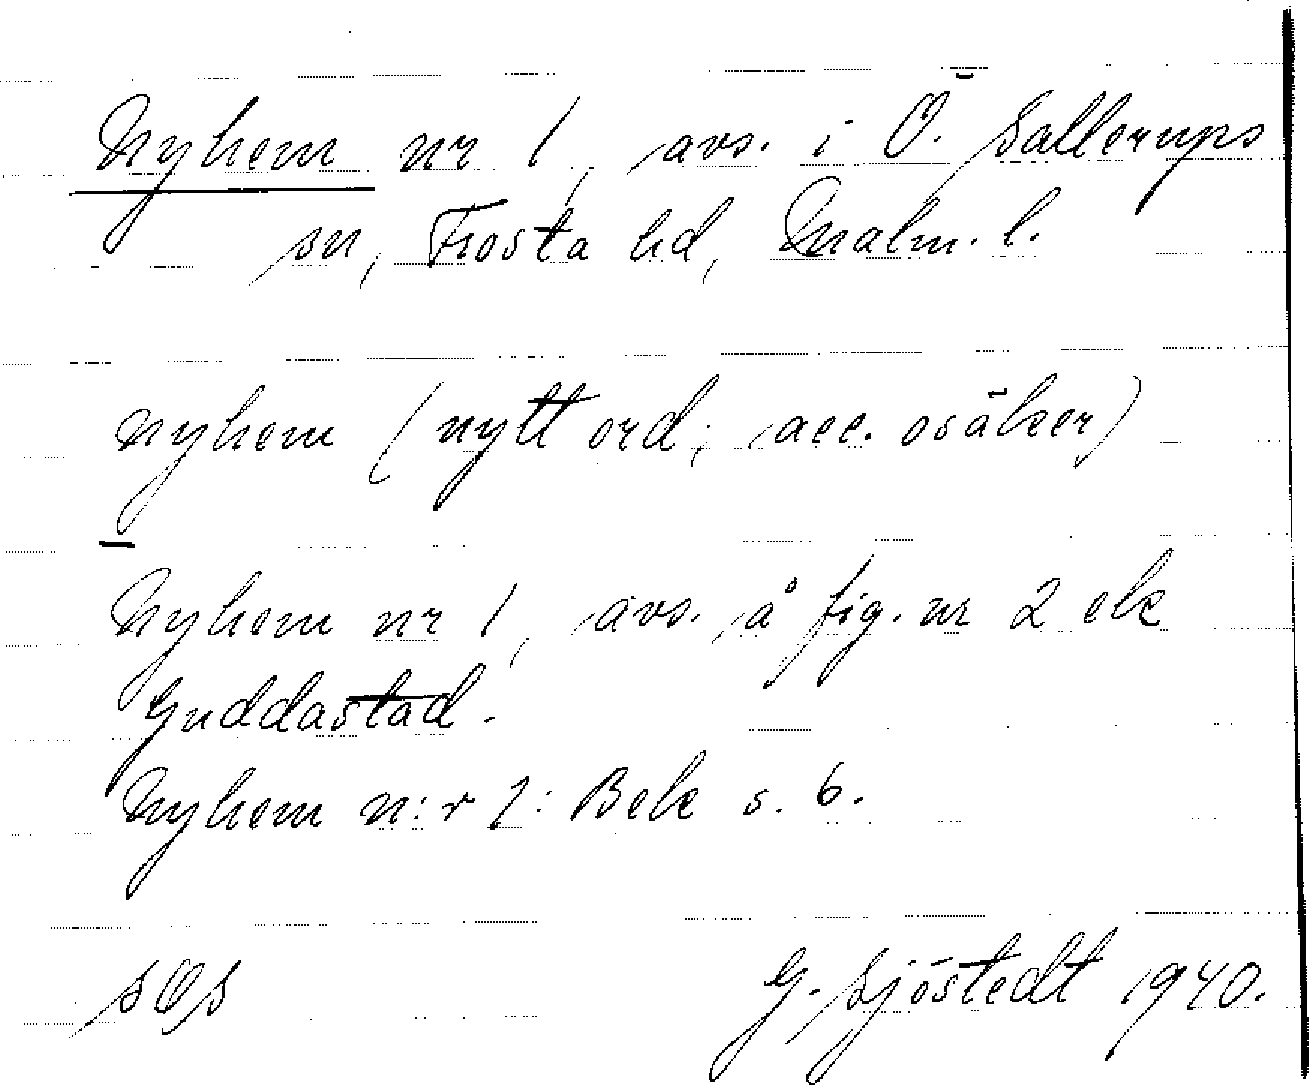 Nyhem nr 1, avs. i Ö. Sallerups
sn, Frosta hd, Malm. l.
nyhem (nytt ord; acc. osäker)
Nyhem nr 1, avs. å fig. nr 2 ek
Guddastad.
Nyhem n:r 1: Bek s. 6.
G. Sjöstedt 1940.